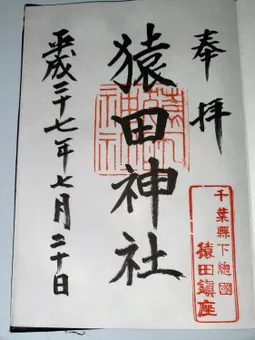 奉拝
猿田神社
平成二十七年七月二十日
千葉縣下總國
猿田鎮座